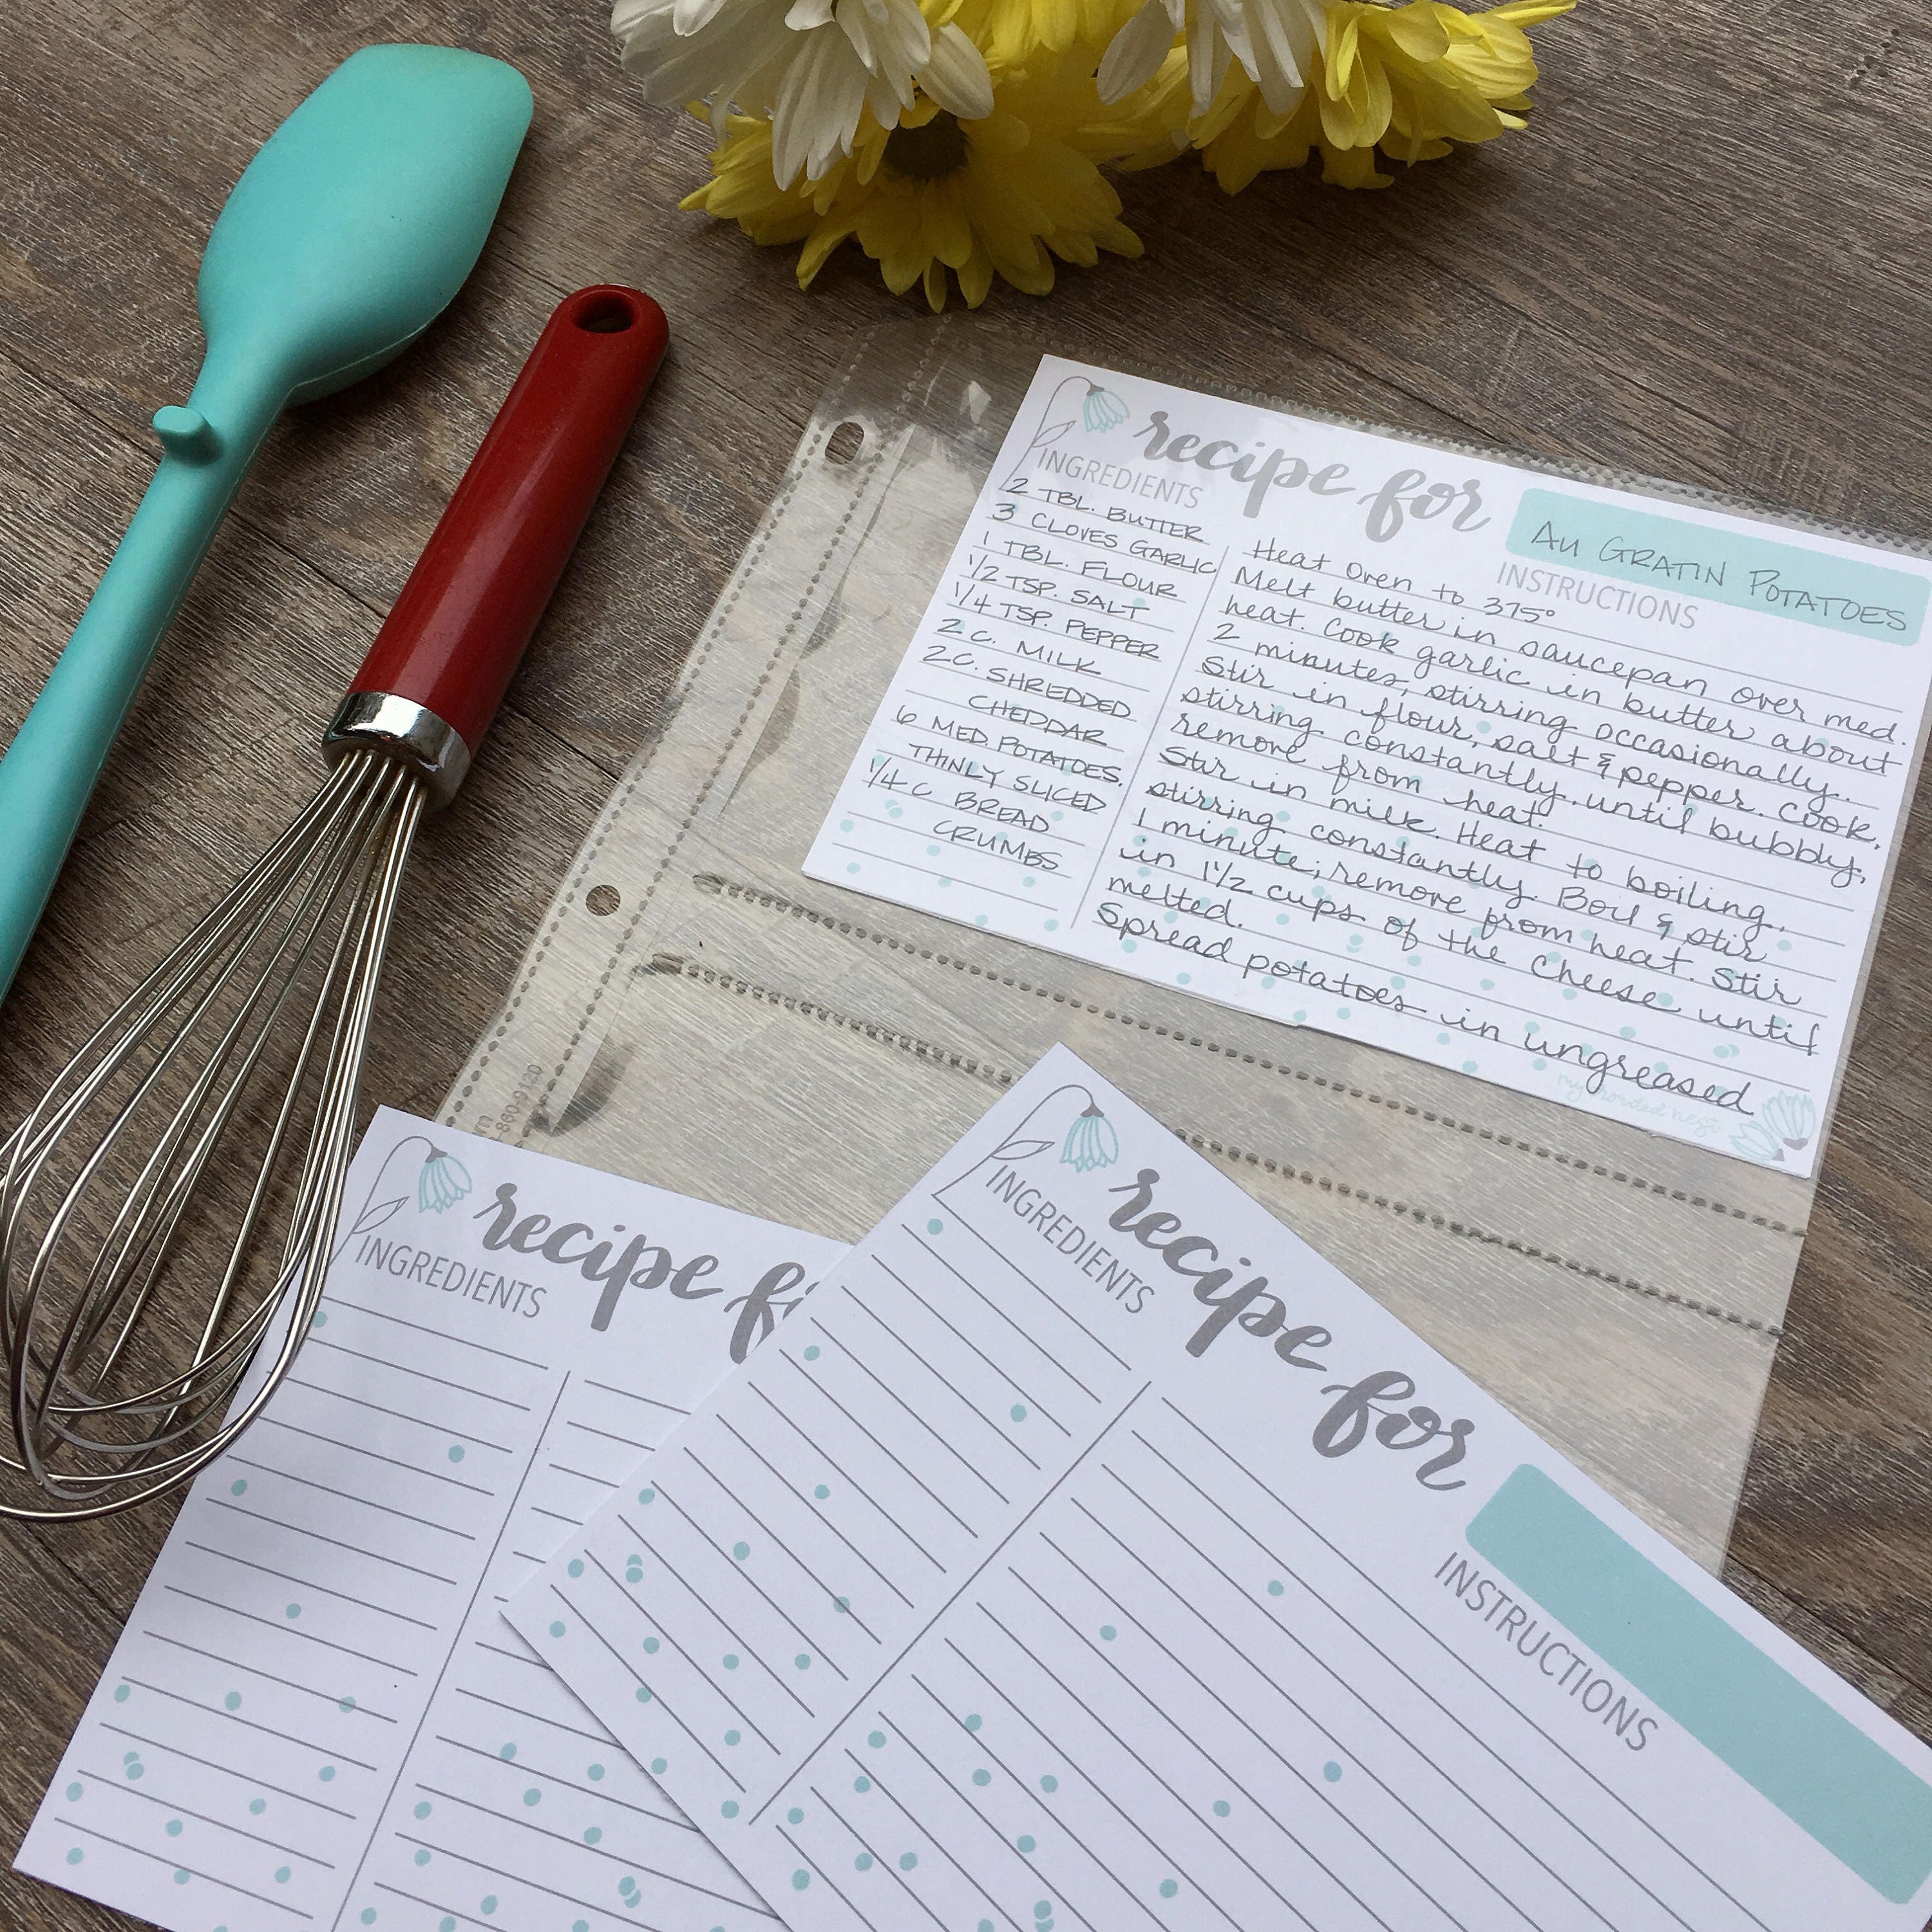 recipe for
Au GRATIN POTATOES
INGREDIENTS
2 TBL. BUTTER
3 CLOVES GARLIC
1 TBL. FLOUR
1/2 TSP. SALT
1/4 TSP. PEPPER
2 C. MILK
2 C. SHREDDED
CHEDDAR
6 MED. POTATOES,
THINLY SLICED
1/4 C BREAD
CRUMBS
INSTRUCTIONS
Heat Oven to 375°
Melt butter in saucepan over med.
heat. Cook garlic in butter about
2 minutes, stirring occasionally.
Stir in flour, salt & pepper. Cook,
stirring constantly until bubbly,
remove from heat.
Stir in milk. Heat to boiling,
stirring constantly. Boil & stir
1 minute; remove from heat. Stir
in 1 1/2 cups of the cheese until
melted.
Spread potatoes in ungreased
my crowded nest
-860-9120
recipe
INGREDIENTS
recipe for
INGREDIENTS
INSTRUCTIONS